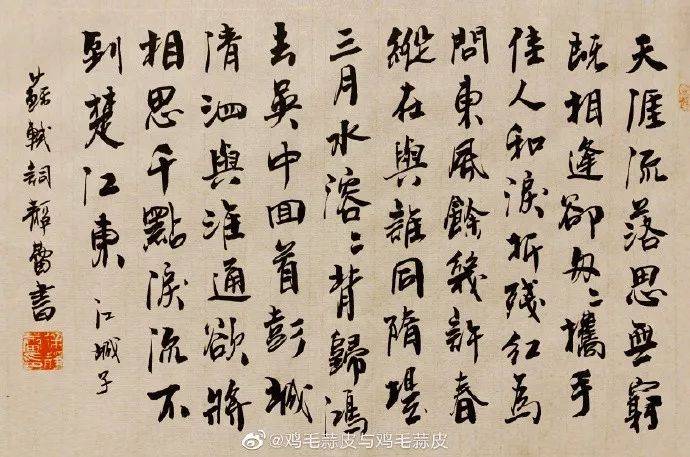 天涯流落思無窮
既相逢卻匆〻攜手
佳人和淚折殘紅為
問東風餘幾許春
縱在與誰同隋堤
三月水溶〻背歸鴻
去吳中回首彭城
清泗與淮通欲將
相思千點淚流不
到楚江東 江城子
蘇軾詞靜蕾書
@鸡毛蒜皮与鸡毛蒜皮